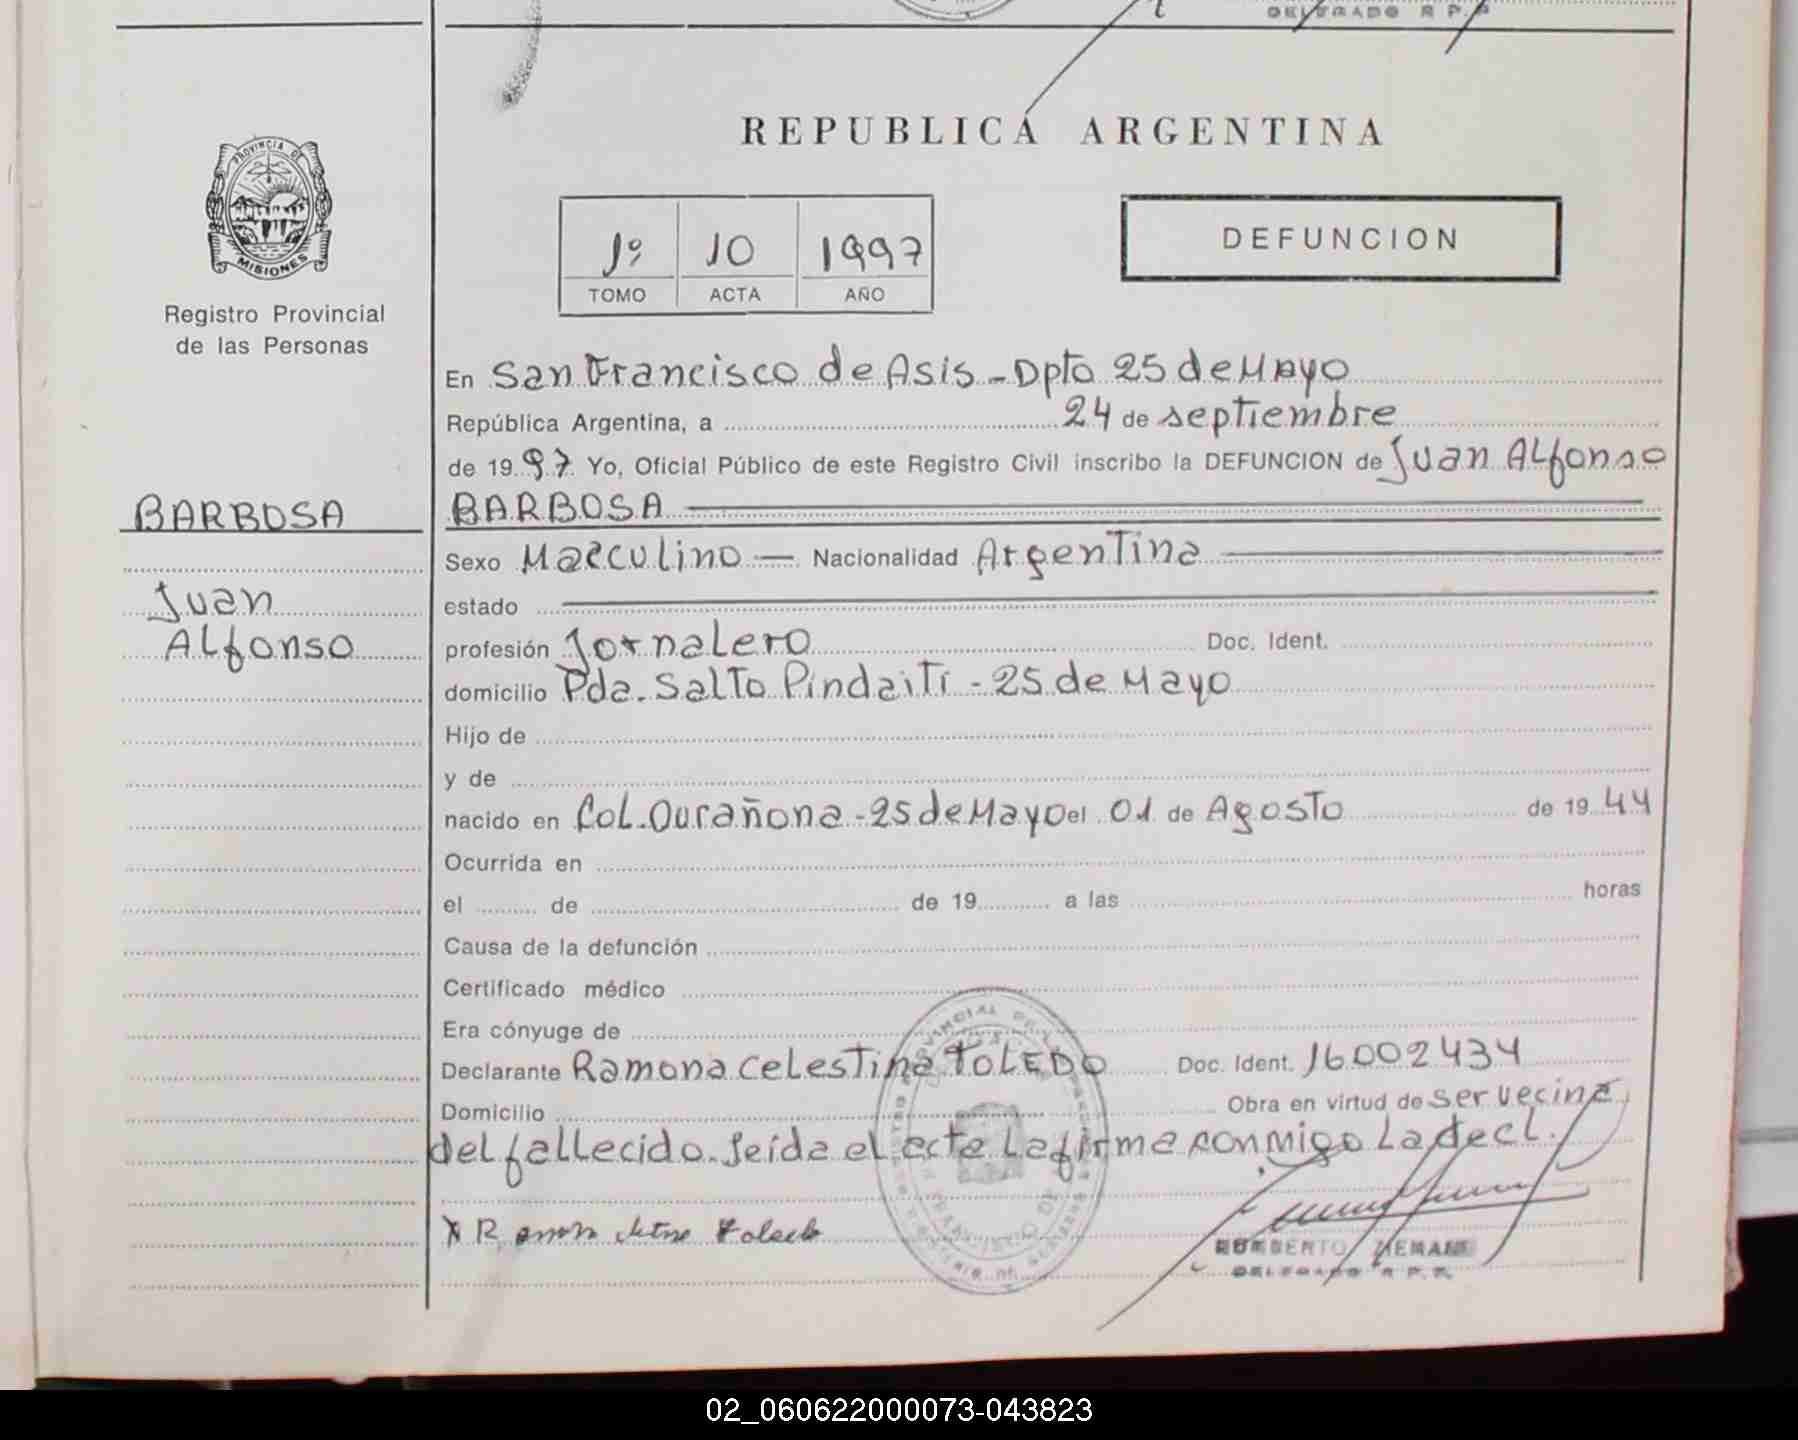 DELEGADO R P. P
REPUBLICA ARGENTINA
PROVINCIA DE
MISIONES
Registro Provincial
de las Personas
1º 10 1997
TOMO ACTA AÑO
DEFUNCION
En San Francisco de Asis - Dpto 25 de Mayo
República Argentina, a 24 de septiembre
de 19 97 Yo, Oficial Público de este Registro Civil inscribo la DEFUNCION de Juan Alfonso
BARBOSA
BARBOSA
Juan
Alfonso
Sexo Masculino — Nacionalidad Argentina
estado
profesión Jornalero Doc. Ident.
domicilio Pda. Salto Pindaiti - 25 de Mayo
Hijo de
y de
nacido en Col. Ourañona - 25 de Mayo el 01 de Agosto de 19 44
Ocurrida en
el de de 19 a las horas
Causa de la defunción
Certificado médico
Era cónyuge de
Declarante Ramona Celestina TOLEDO Doc. Ident. 16002434
Domicilio Obra en virtud de ser vecina
del fallecido. Leída el acta La firma conmigo La decl.
X R Toledo
HUMBERTO
DELEGADO R P. P.
02_060622000073-043823